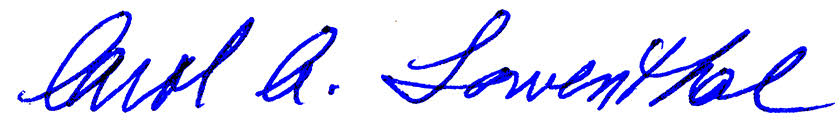 Carol A. Lowenthal